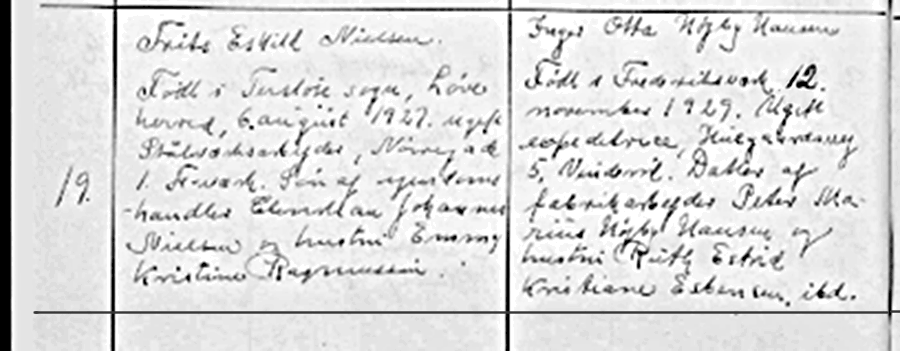 19.
Frits Eskild Nielsen.
Født i Tersløse sogn, Løve
herred, 6. august 1927. Ugift
Stålvalsearbejder, Nørregade
1. Fr-værk. Søn af
handler Johannes
Nielsen og hustru Emmy
Kristine Rasmussen.
Inger Otta Højby Hansen
Født i Frederiksværk 12.
november 1929. Ugift
expeditrice,
5, Vinderød. Datter af
fabrikarbejder Peter Ma-
rius Højby Hansen og
hustru Ruth Estrid
Kristiane Eskensen, ibd.